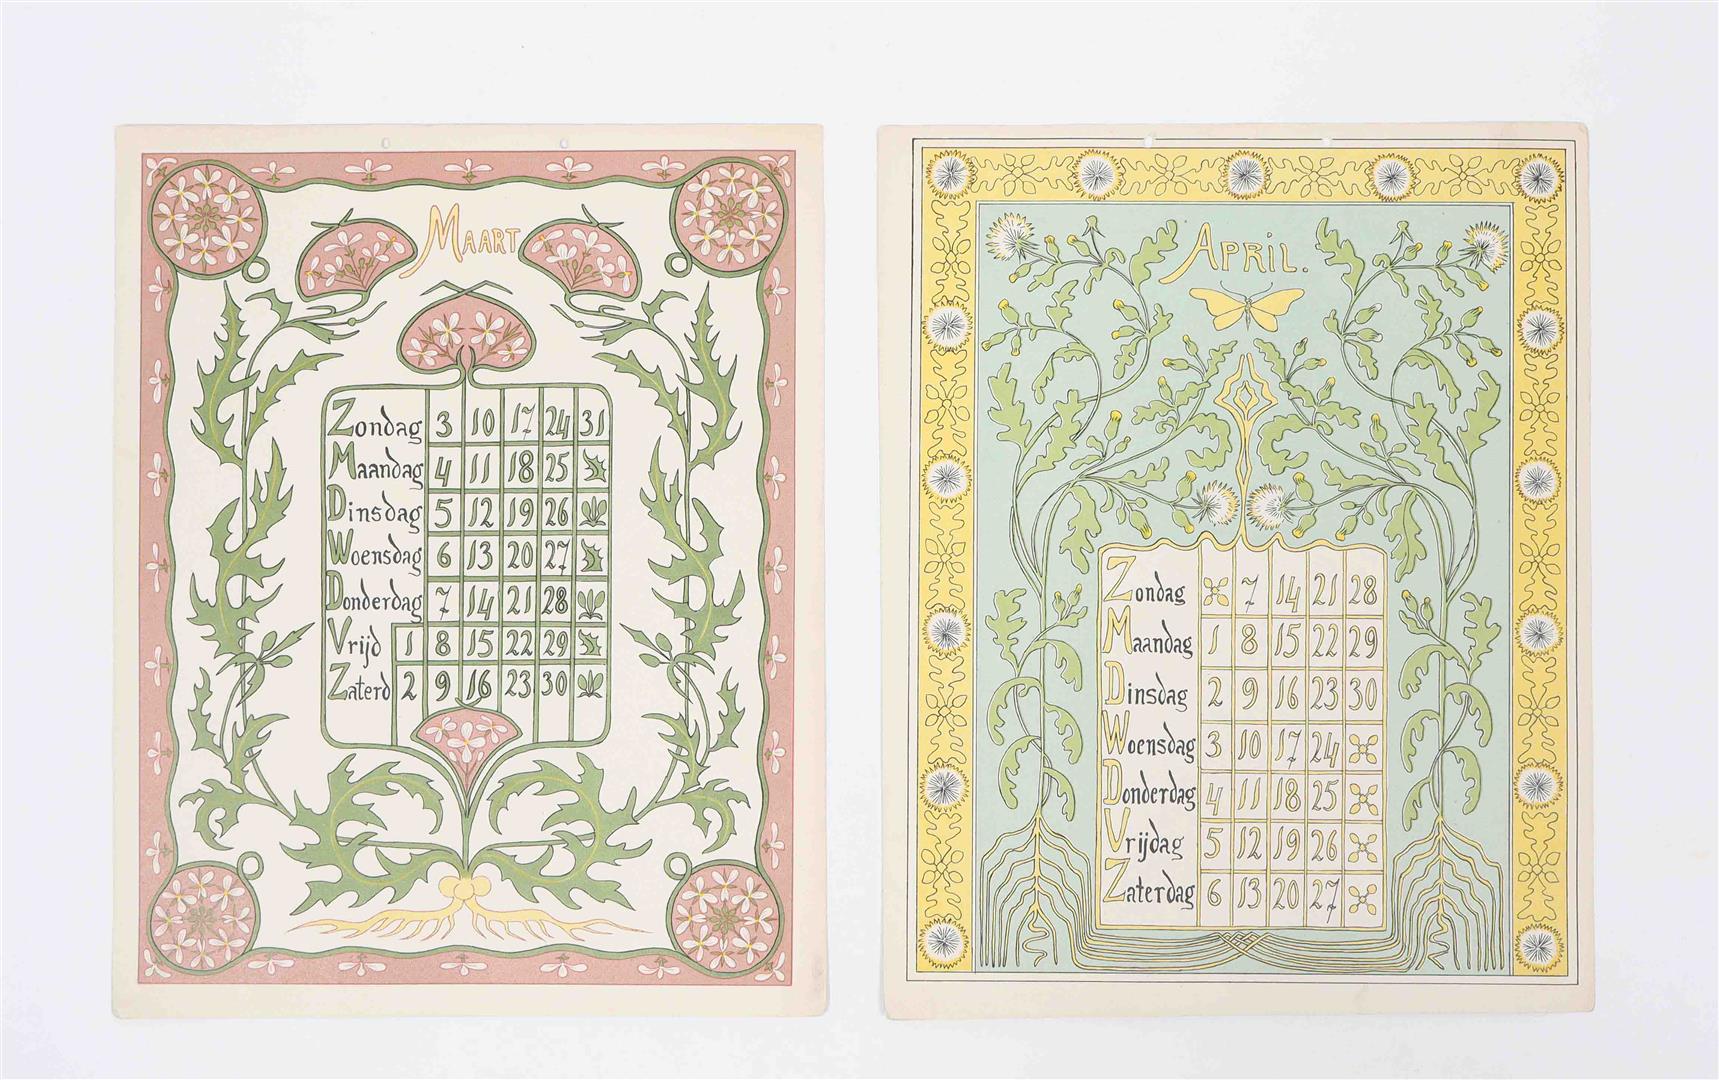 MAART
Zondag 3 10 17 24 31
Maandag 4 11 18 25
Dinsdag 5 12 19 26
Woensdag 6 13 20 27
Donderdag 7 14 21 28
Vrijd 1 8 15 22 29
Zaterd 2 9 16 23 30
APRIL.
Zondag 7 14 21 28
Maandag 1 8 15 22 29
Dinsdag 2 9 16 23 30
Woensdag 3 10 17 24
Donderdag 4 11 18 25
Vrijdag 5 12 19 26
Zaterdag 6 13 20 27